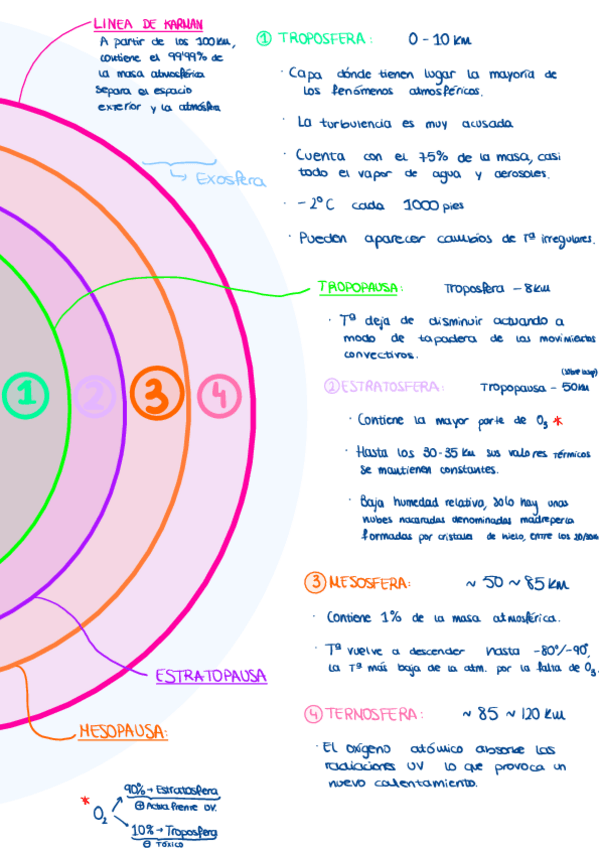 LINEA DE KARMAN
A partir de los 100 km,
contiene el 99'99% de
la masa atmosférica
Separa el espacio
exterior y la atmósfera
Exosfera
① TROPOSFERA: 0 - 10 km
· Capa dónde tienen lugar la mayoría de
los fenómenos atmosféricos.
· La turbulencia es muy acusada
· Cuenta con el 75% de la masa, casi
todo el vapor de agua y aerosoles.
· -2°C cada 1000 pies
· Pueden aparecer cambios de Tª irregulares.
TROPOPAUSA: Troposfera - 8km
· Tª deja de disminuir actuando a
modo de tapadera de los movimientos
convectivos.
② ESTRATOSFERA: Tropopausa - 50km
· Contiene la mayor parte de O3 *
· Hasta los 30-35 km sus valores térmicos
se mantienen constantes.
· Baja humedad relativa, solo hay unas
nubes nacaradas denominadas madreperla
formadas por cristales de hielo, entre los
③ MESOSFERA: ~ 50 ~ 85 km
· Contiene 1% de la masa atmosférica.
· Tª vuelve a descender hasta -80°/-90°,
la Tª más baja de la atm. por la falta de O3.
④ TERMOSFERA: ~ 85 ~ 120 km
· El oxígeno atómico absorbe las
radiaciones UV lo que provoca un
nuevo calentamiento.
1
2
3
4
ESTRATOPAUSA
MESOPAUSA:
* O2
90% → Estratosfera
⊕ Actua frente UV.
10% → Troposfera
⊖ TÓXICO